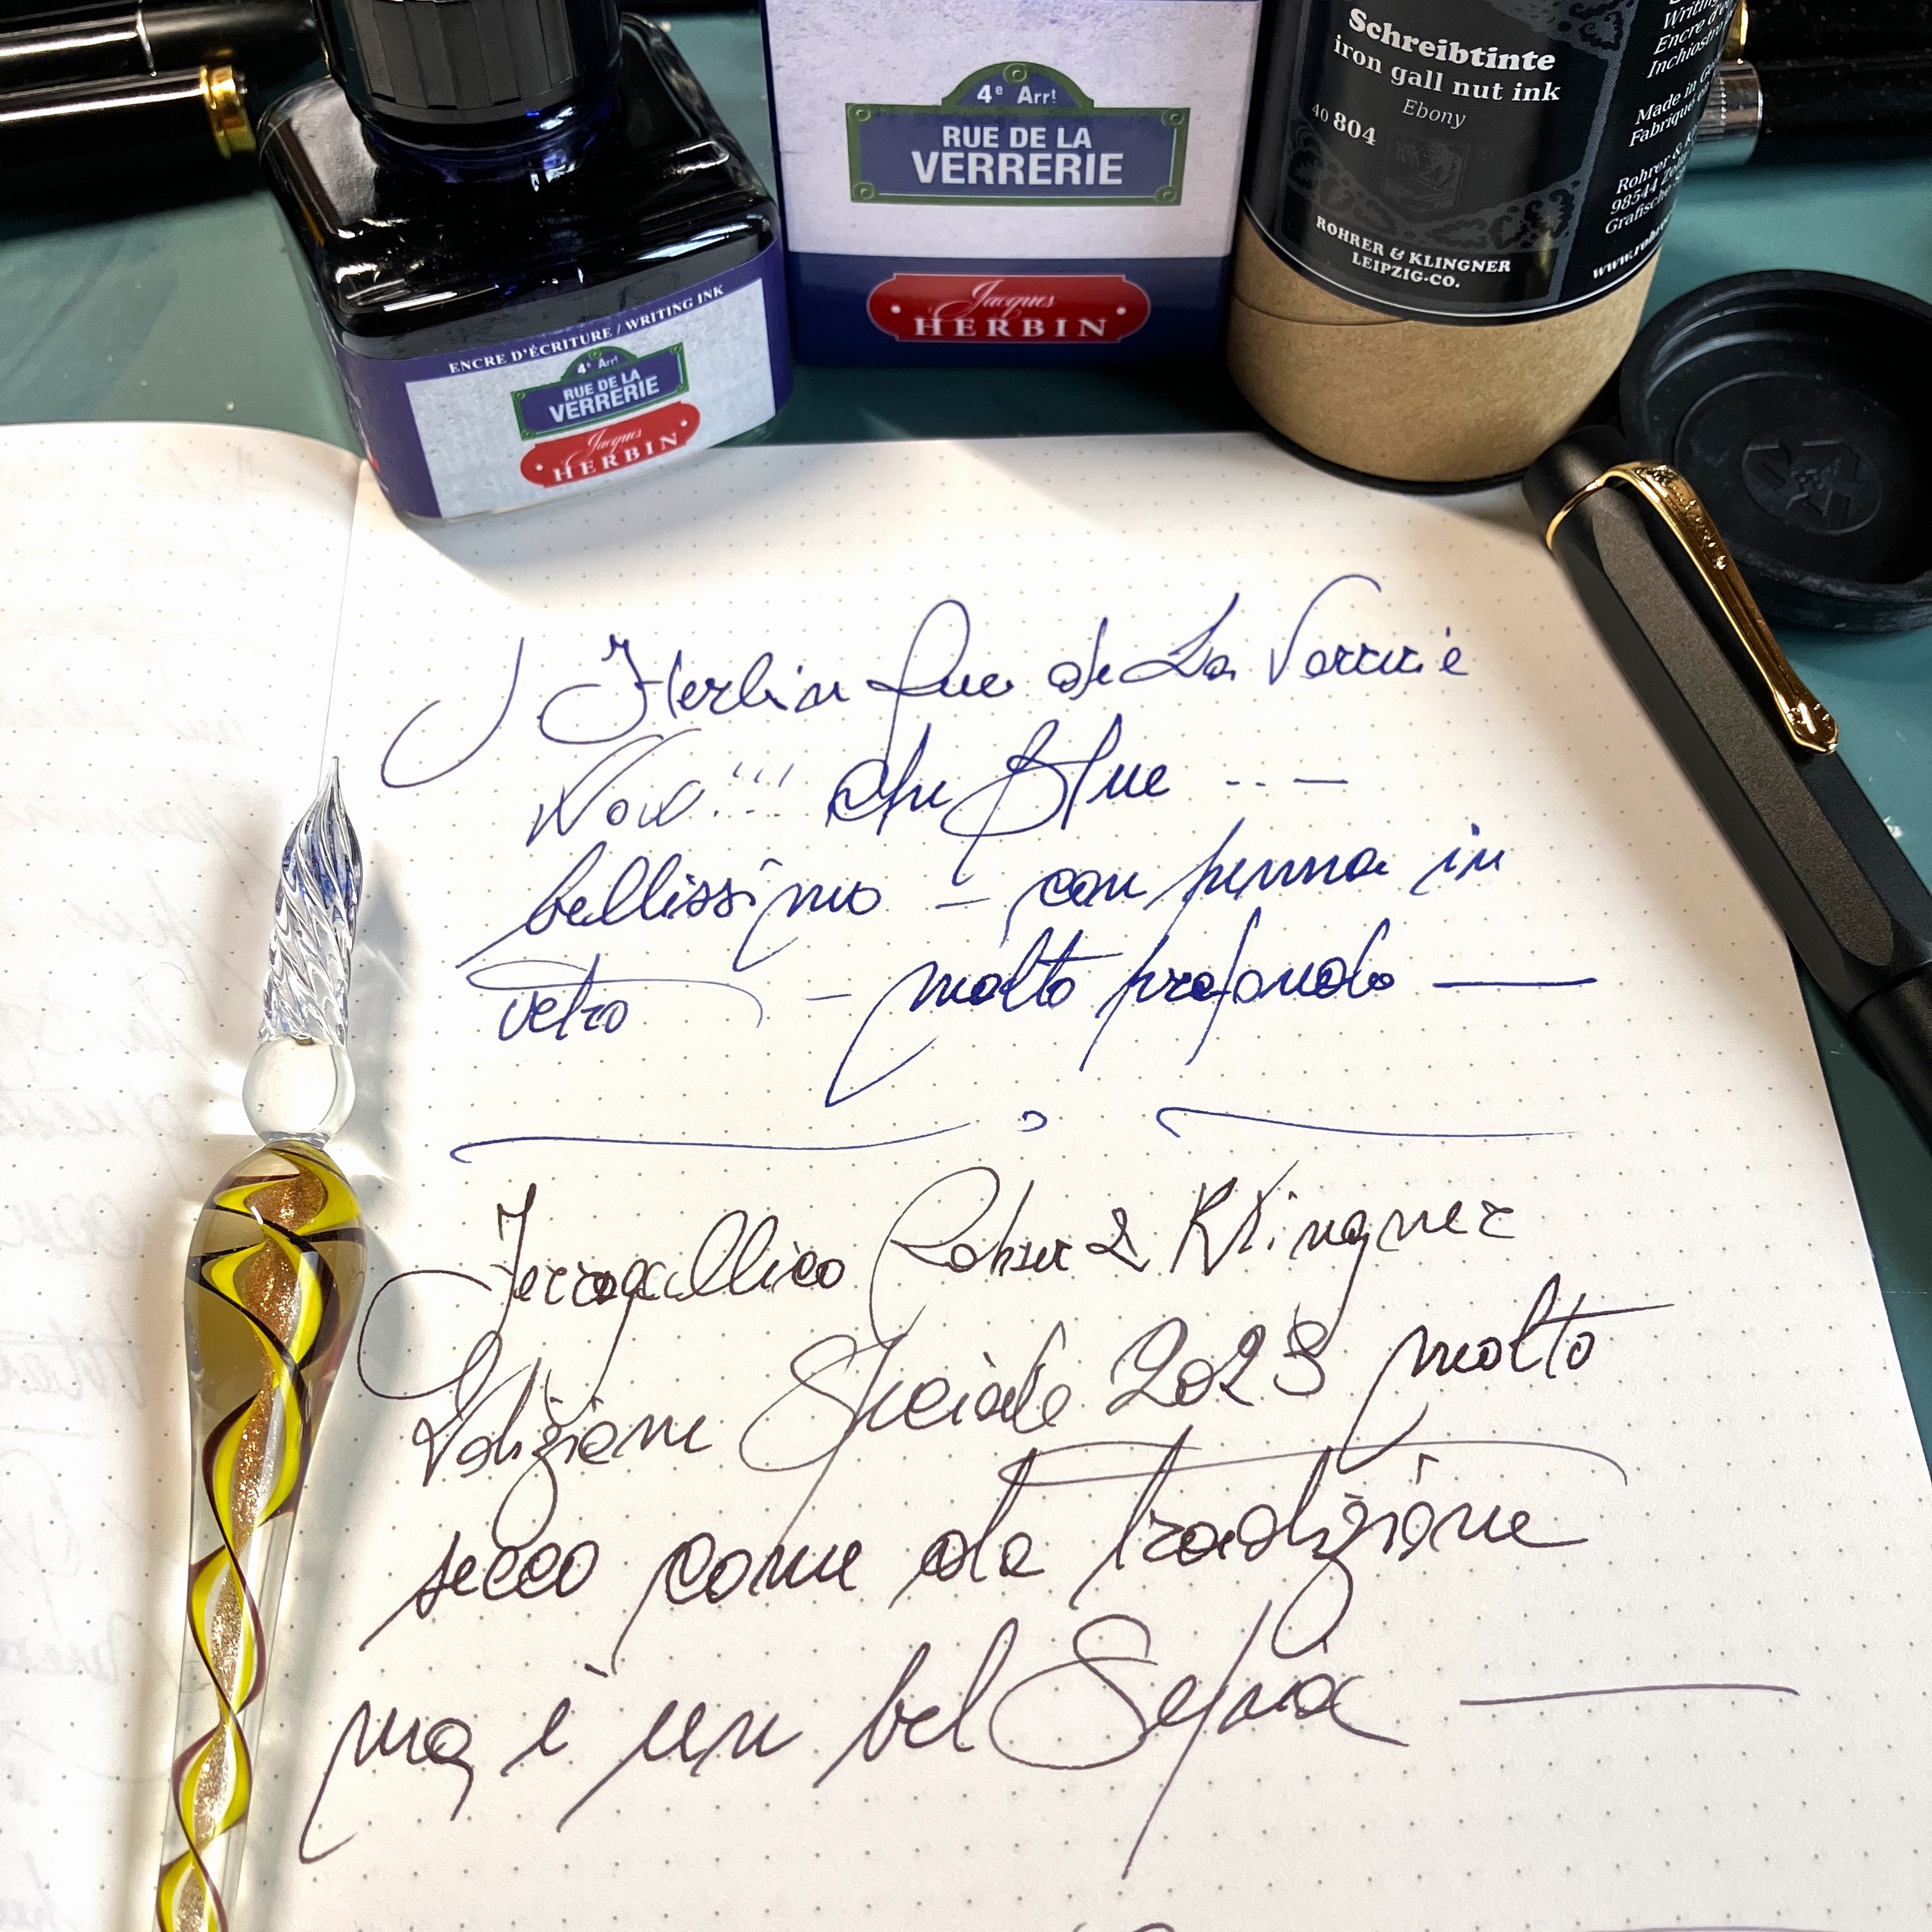 Schreibtinte
iron gall nut ink
Ebony
40 804
ROHRER & KLINGNER
LEIPZIG-CO.
Writing
Encre d'é
Inchiostr
Made in G
Fabriqué e
Rohrer & K
98544 Ze
Grafische
www.rohre
4e Arrt
RUE DE LA
VERRERIE
Jacques
HERBIN
ENCRE D'ÉCRITURE / WRITING INK
4e Arrt
RUE DE LA
VERRERIE
Jacques
HERBIN
J Herbin Rue de La Verrerie
Wow!!! che Blue ... —
bellissimo — con penna in
vetro — molto profondo —
Ferrogallico Rohrer & Klingner
Edizione Speciale 2023 molto
secco come da tradizione
ma è un bel Sepia —